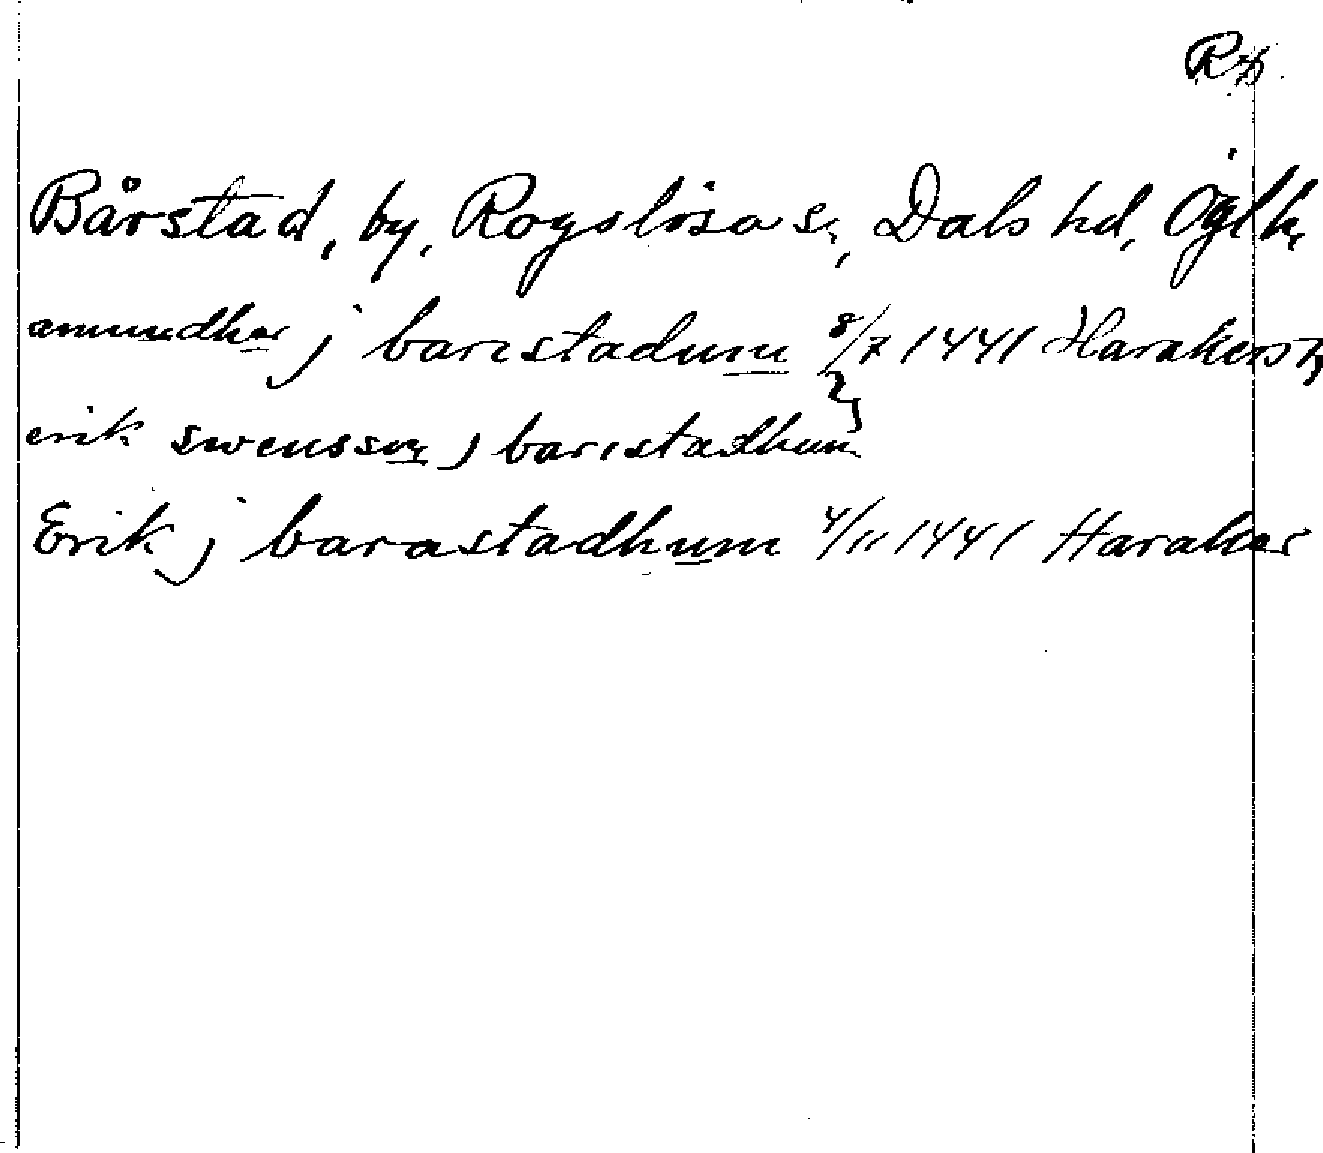 Bårstad, by, Rogslösa s:, Dals hd, Ögl k,
amundher j barestadum 8/7 1441 Harakers h,
erik swensson j barestadhum
Erik j barastadhum 4/11 1441 Haraker